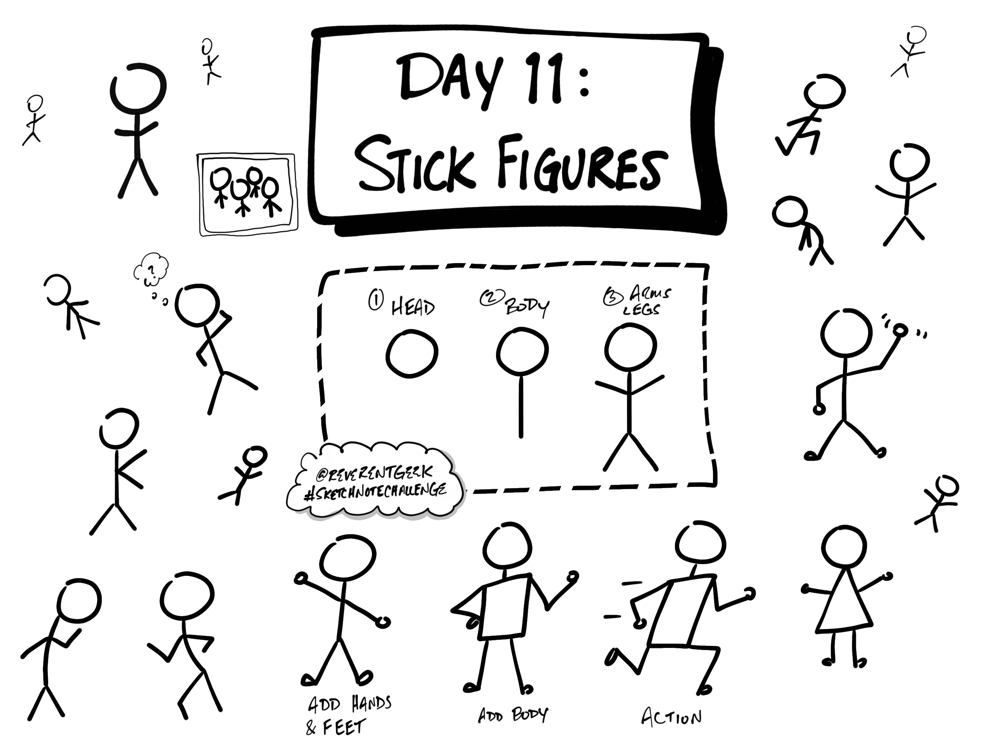 DAY 11:
STICK FIGURES
?
① HEAD
② BODY
③ ARMS
LEGS
@REVERENTGEEK
#SKETCHNOTECHALLENGE
ADD HANDS
& FEET
ADD BODY
ACTION